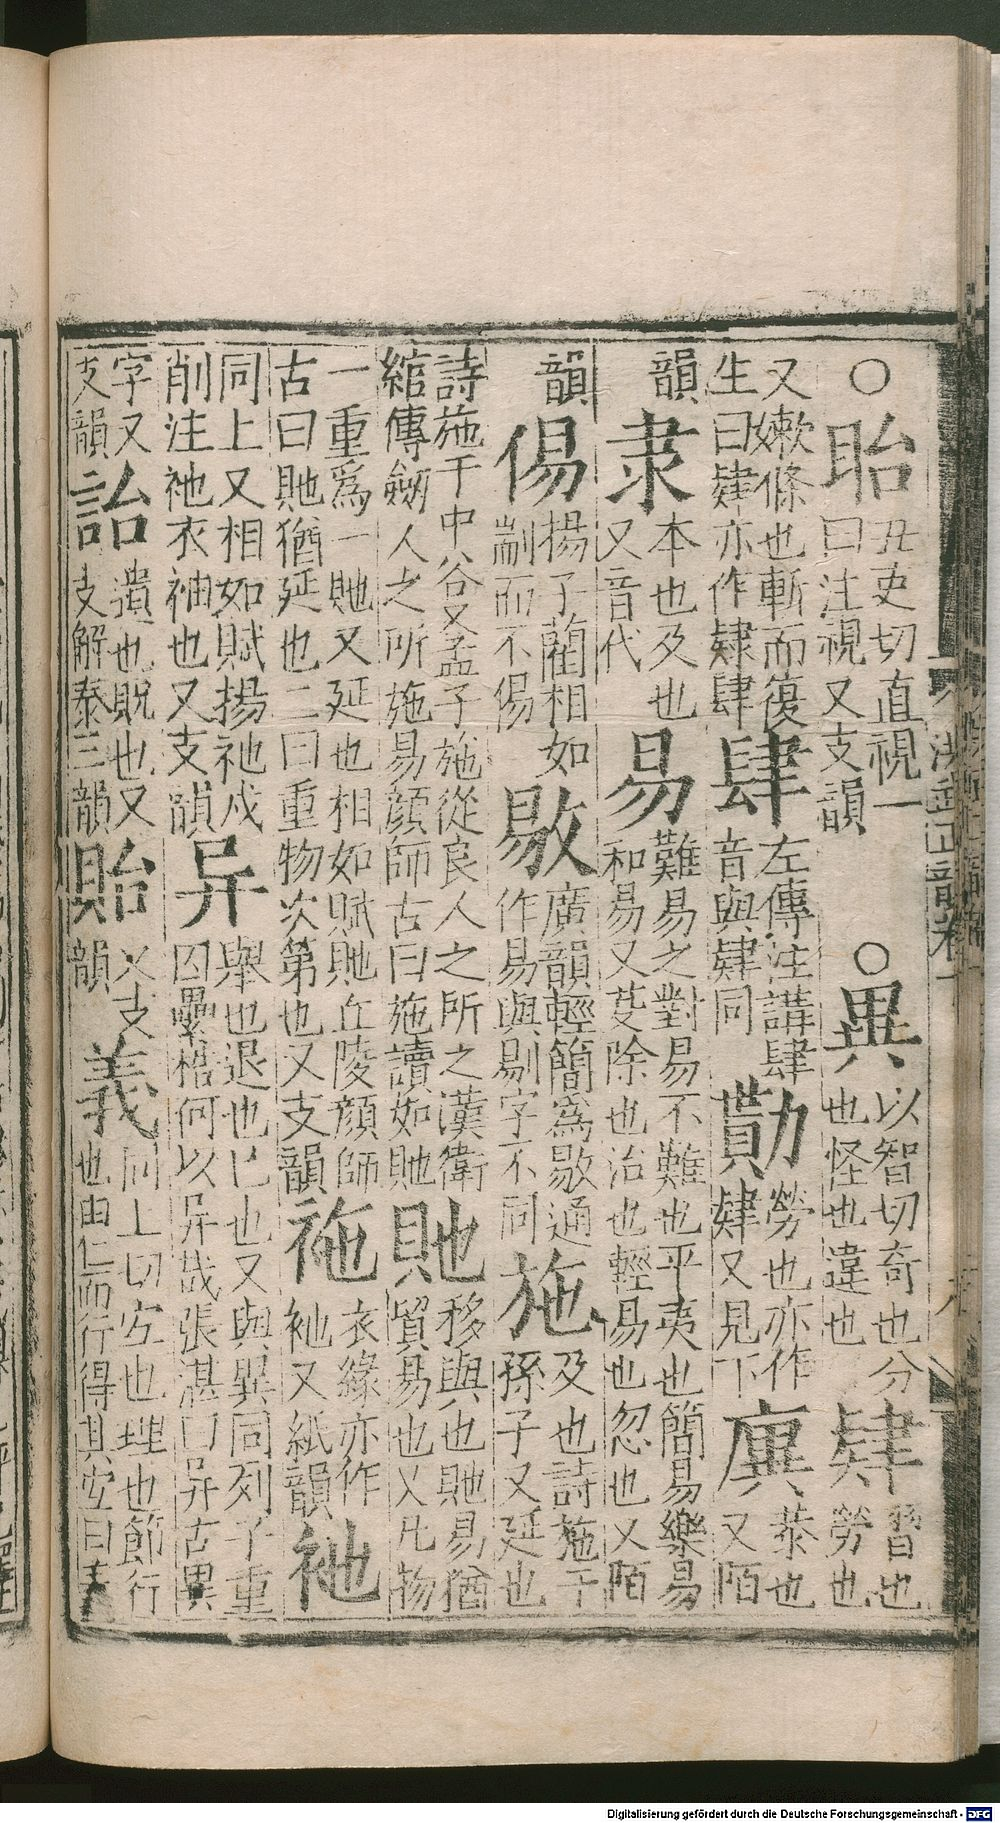 ○眙丑吏切直視一曰注視又支韻○異以智切奇也分也怪也違也肄習也勞也
又嫰條也斬而復生曰肄亦作肄肆左傳注講肆音與肄同勩勞也亦作肄又見下㢞恭也又陌
韻隶本也及也又音代易難易之對易不難也平夷也簡易樂易和易又芟除也治也輕易也忽也又陌
韻傷揚子藺相如剬而不傷敡廣韻輕簡爲敡通作易與剔字不同施及也詩施于孫子又延也
詩施于中谷又孟子施從良人之所之漢衛綰傳劒人之所施易顏師古曰施讀如貤貤移與也貤易猶貿易也又凡物
一重爲一貤又延也相如賦貤丘陵顏師古曰貤猶延也二曰重物次第也又支韻袘衣緣亦作衪又紙韻衪
同上又相如賦揚衪戌削注衪衣袖也又支韻异舉也退也已也又與異同列子重囚纍梏何以异哉張湛曰异古異
字又支韻詒遺也貺也又支解泰三韻貽又支韻義同上切宜也理也節行也由仁而行得其宜曰義
洪武正韻卷十
Digitalisierung gefördert durch die Deutsche Forschungsgemeinschaft - DFG